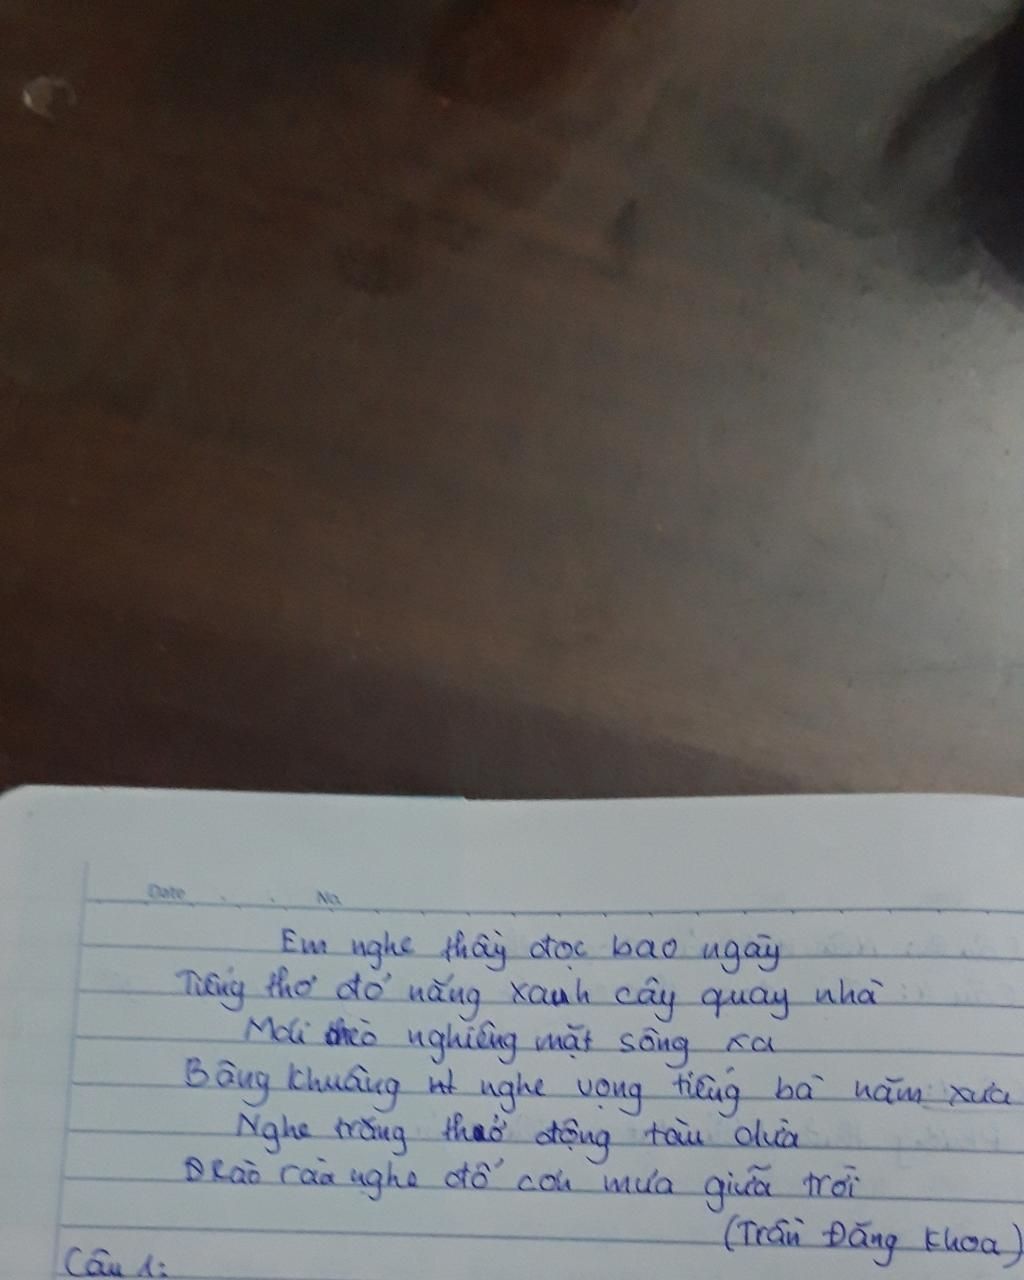 Date No.
Em nghe thầy đọc bao ngày
Tiếng thơ đỏ nắng xanh cây quay nhà
Mái chèo nghiêng mặt sông xa
Bâng khuâng nghe vọng tiếng bà năm xưa
Nghe trăng thở động tàu dừa
Rào rào nghe đổ cơn mưa giữa trời
(Trần Đăng Khoa)
Câu 1: